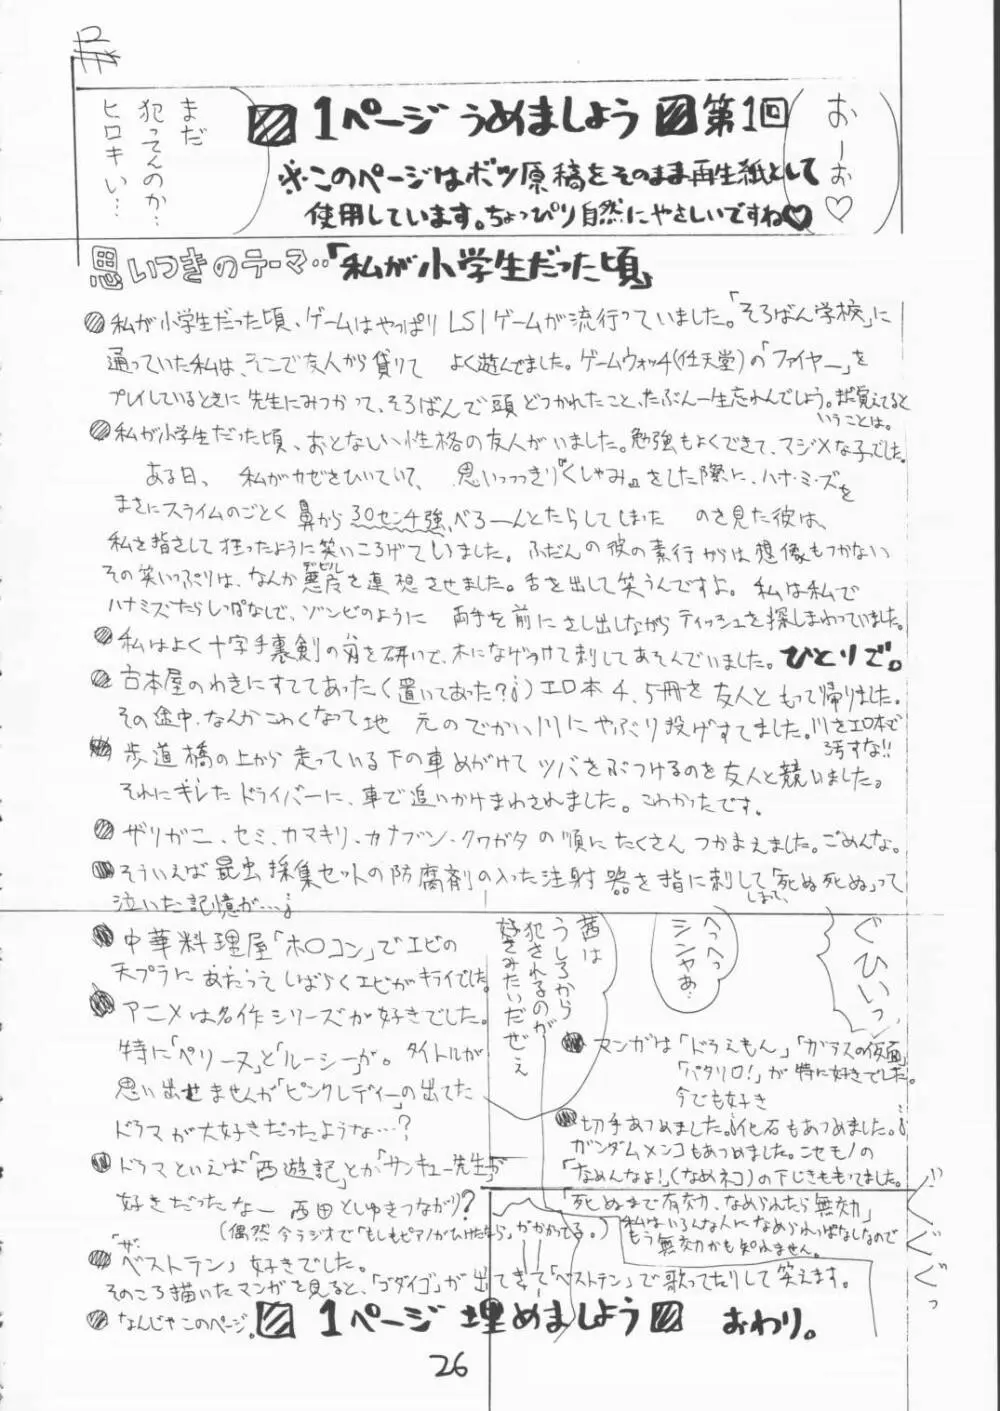 ☐1ページうめましょう☐第1回
※このページはボツ原稿をそのまま再生紙として
使用しています。ちょっぴり自然にやさしいですね♡
まだ
犯ってんのか…
ヒロキい…
おーお♡
思いつきのテーマ…「私が小学生だった頃」
私が小学生だった頃、ゲームはやっぱりLSIゲームが流行っていました。「そろばん学校」に
通っていた私は、そこで友人から貸りて よく遊んでました。ゲームウォッチ(任天堂)の「ファイヤー」を
プレイしているときに先生にみつかって、そろばんで頭どつかれたこと、たぶん一生忘れんでしょう。まだ覚えてると
いうことは。
私が小学生だった頃、おとなしい性格の友人がいました。勉強もよくできて、マジメな子でした。
ある日、 私がカゼをひいていて、 思いっっきり『くしゃみ』をした際に、ハナ・ミ・ズを
まさにスライムのごとく鼻から30センチ強、べろーんとたらしてしまった のを見た彼は、
私を指さして狂ったように笑いころげていました。ふだんの彼の素行からは想像もつかない
その笑いっぷりは、なんか悪魔を連想させました。舌を出して笑うんですよ。私は私で
デビル
ハナミズたらしっぱなしで、ゾンビのように 両手を前にさし出しながらティッシュを探しまわっていました。
私はよく十字手裏剣の刃を研いで、木になげつけて刺してあそんでいました。ひとりで。
古本屋のわきにすててあった(置いてあった?)エロ本4、5冊を友人ともって帰りました。
その途中、なんかこわくなって地 元のでかい川にやぶり投げすてました。川をエロ本で
汚すな!!
歩道橋の上から走っている下の車めがけてツバをぶつけるのを友人と競いました。
それにキレたドライバーに、車で追いかけまわされました。こわかったです。
ザリガニ、セミ、カマキリ、カナブン・クワガタの順にたくさんつかまえました。ごめんな。
そういえば昆虫採集セットの防腐剤の入った注射器を指に刺して「死ぬ死ぬ」って
しまって、
泣いた記憶が…
中華料理屋「ホ〇コン」でエビの
天プラにあたってしばらくエビがキライでした。
アニメは名作シリーズが好きでした。
特に「ペリーヌ」と「ルーシー」が。タイトルが
思い出せませんが「ピンクレディー」の出てた
ドラマが大好きだったような…?
ドラマといえば「西遊記」とか「サンキュー先生」が
好きだったなー 西田としゆきつながり?
(偶然今ラジオで「もしもピアノがひけたなら」がかかってる。)
「ザ・
ベストテン」好きでした。
そのころ描いたマンガを見ると、「ゴダイゴ」が出てきて「ベストテン」で歌ってたりして笑えます。
なんじゃこのページ。
ぐひいっ
へっへっ
シンヤあ…
茜は
うしろから
犯されるのが
好きみたいだぜぇ
マンガは「ドラえもん」「ガラスの仮面」
「パタリロ!」が特に好きでした。
今でも好き
切手あつめました。化石もあつめました。
ガンダムメンコもあつめました。ニセモノの
「なめんなよ!」(なめネコ)の下じきももってました。
「死ぬまで有効、なめられたら無効」
私はいろんな人になめられっぱなしなので
もう無効かも知れません。
ぐぐぐっ
☐1ページ埋めましょう☐ おわり。
26